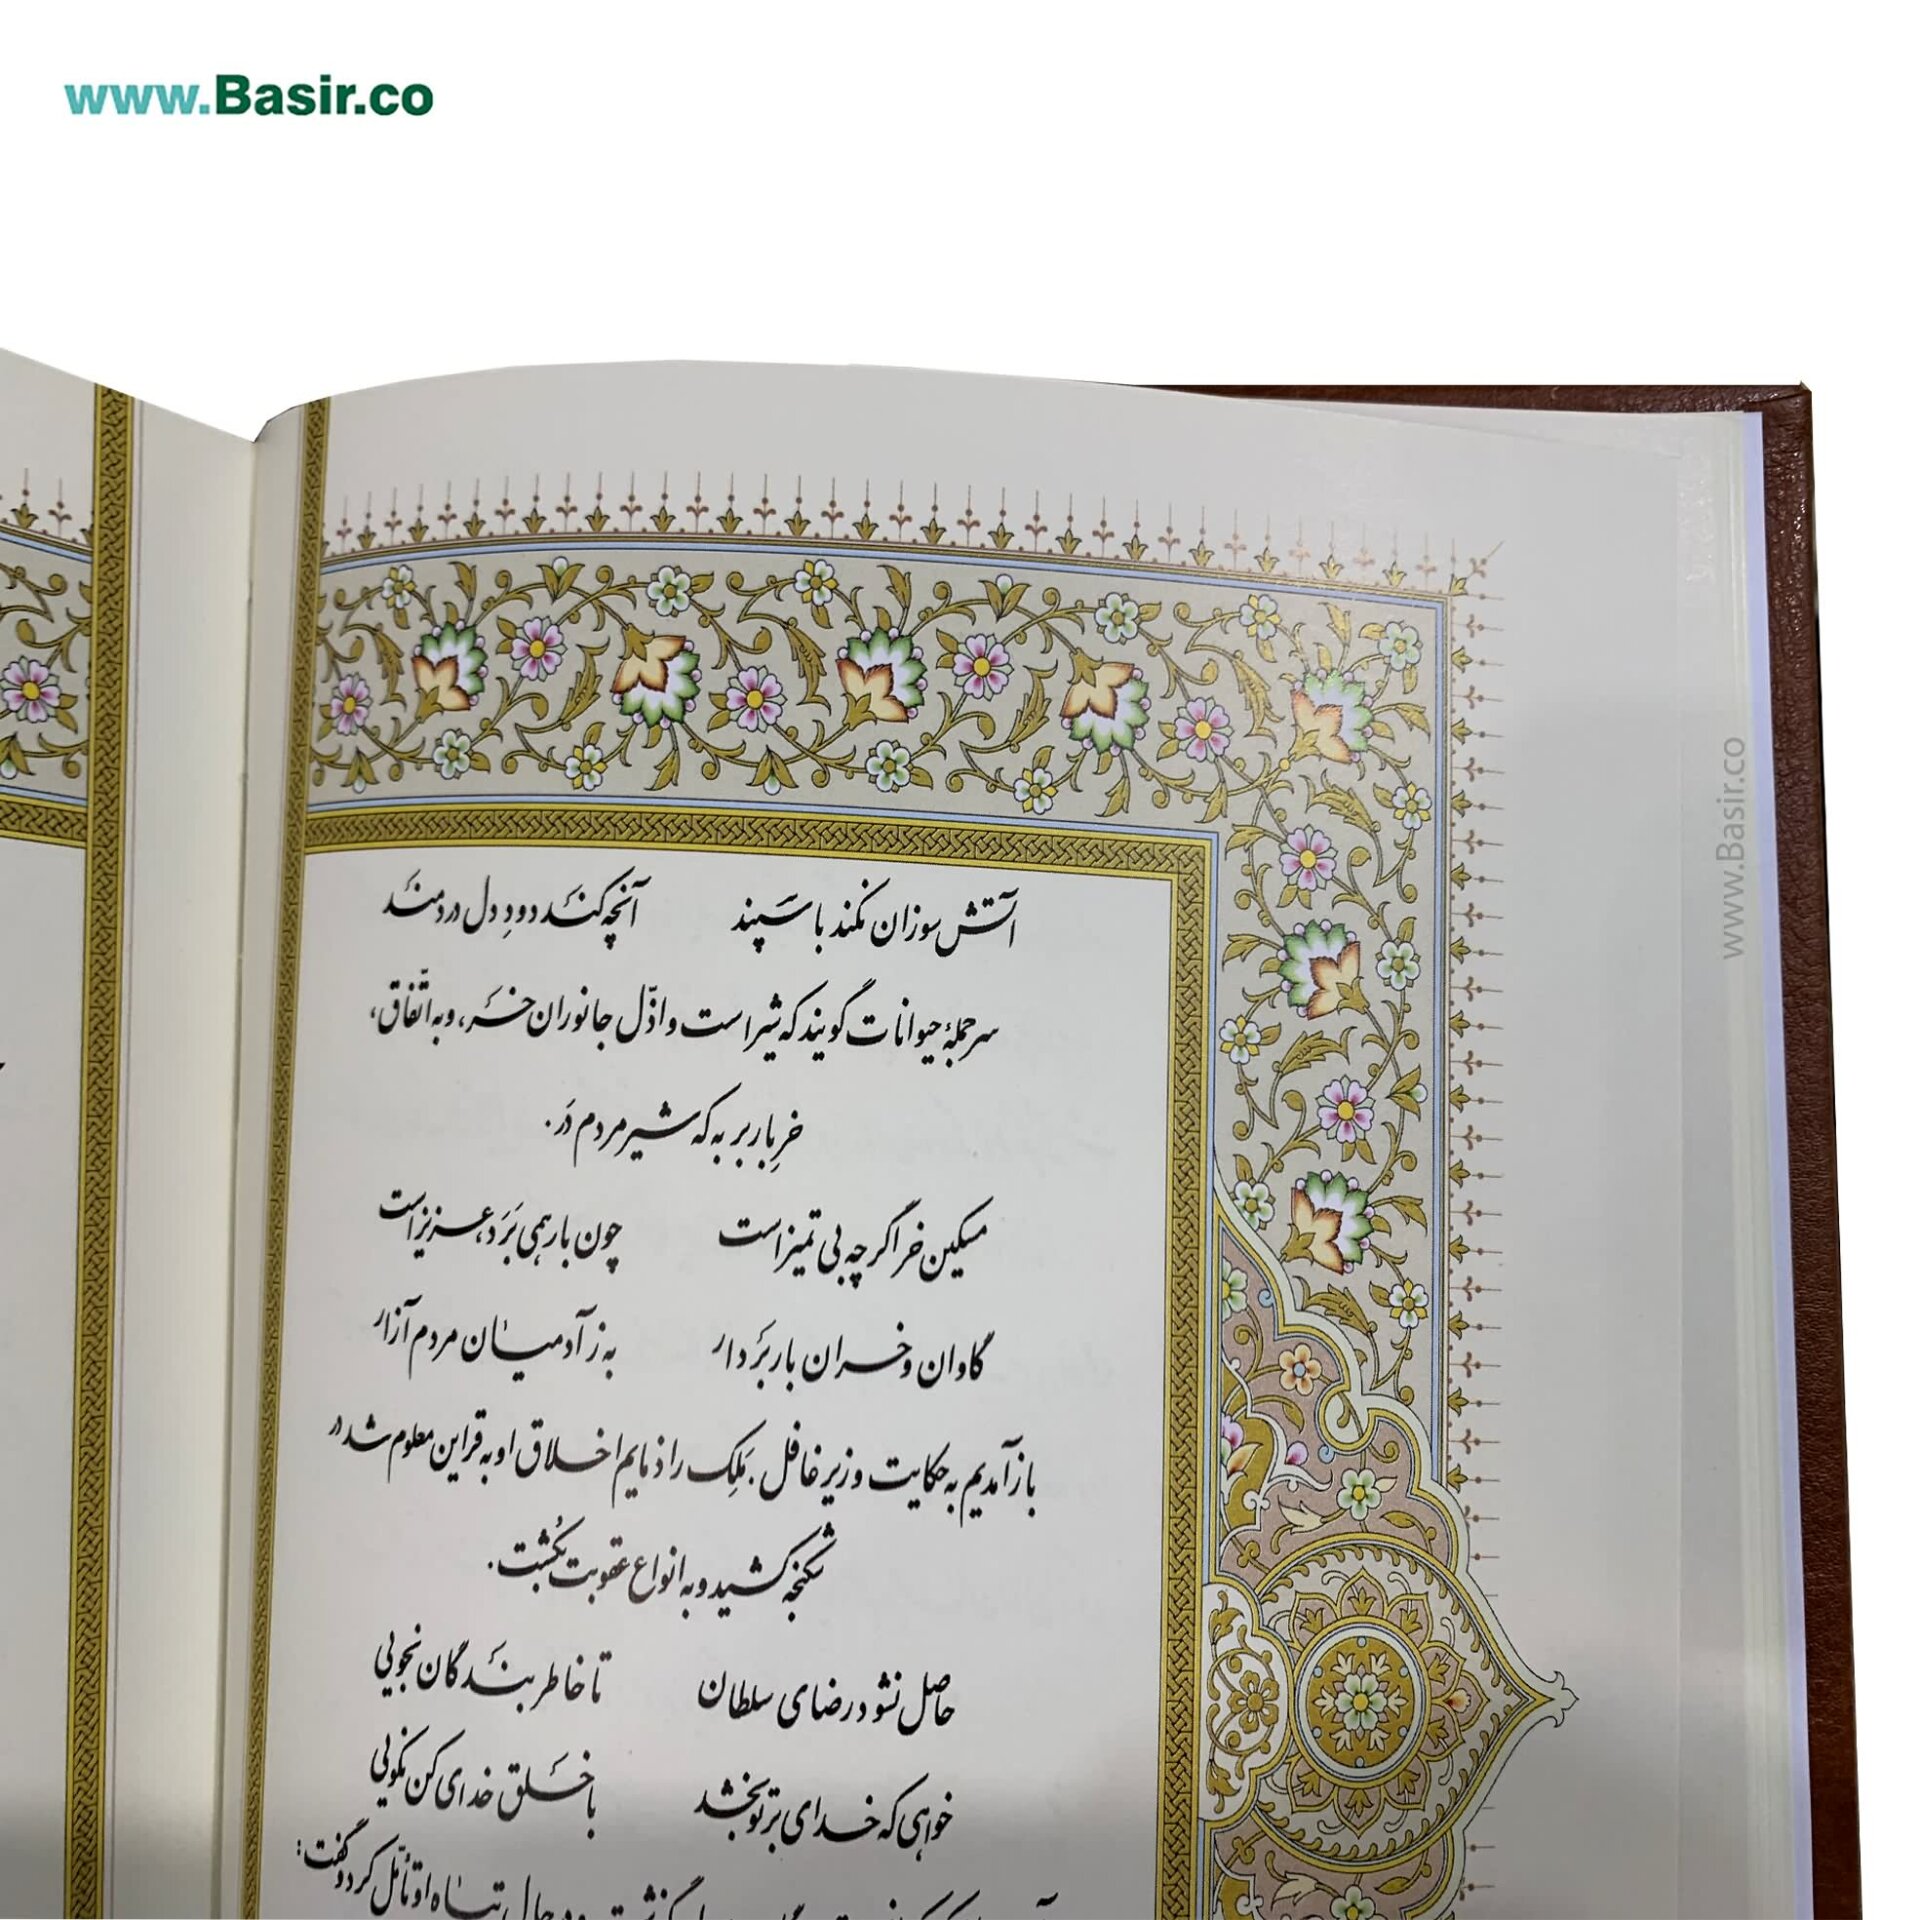 www.Basir.co
آتش سوزان نکند با سپند آنچه کند دودِ دل دردمند
سرجملهٔ حیوانات گویند که شیر است و اذّل جانوران خَر، و به اتّفاق،
خرِ باربر به که شیر مردم دَر.
مسکین خر اگر چه بی تمیز است چون بار همی بَرَد، عزیز است
گاوان و خران بار بَردار به ز آدمیان مردم آزار
باز آمدیم به حکایت وزیر غافل. مَلِک را ذمایم اخلاق او به قراین معلوم شد در
شکنجه کشید و به انواع عقوبت بکُشت.
حاصل نشود رضای سلطان تا خاطر بندگان نجویی
خواهی که خدای بر تو بخشد با خَلق خدای کن نکویی
حال تباه او تأمّل کرد و گفت:
www.Basir.co